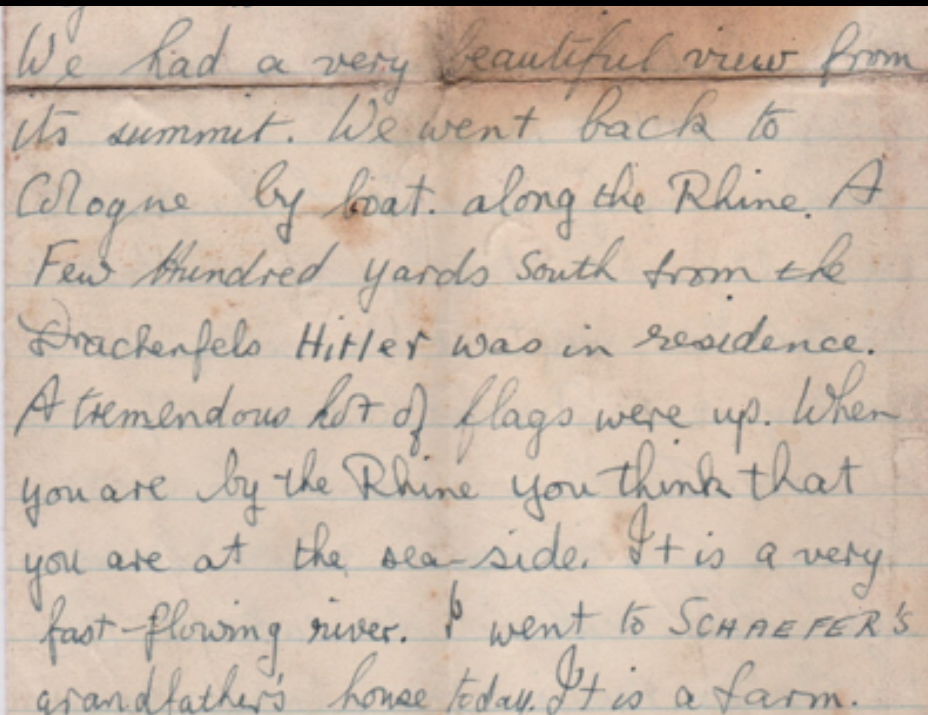 We had a very beautiful view from
its summit. We went back to
Cologne by boat. along the Rhine. A
Few Hundred yards South from the
Drachenfels Hitler was in residence.
A tremendous lot of flags were up. When
you are by the Rhine you think that
you are at the sea-side. It is a very
fast-flowing river. I went to SCHAEFER'S
grandfather's house today. It is a farm.